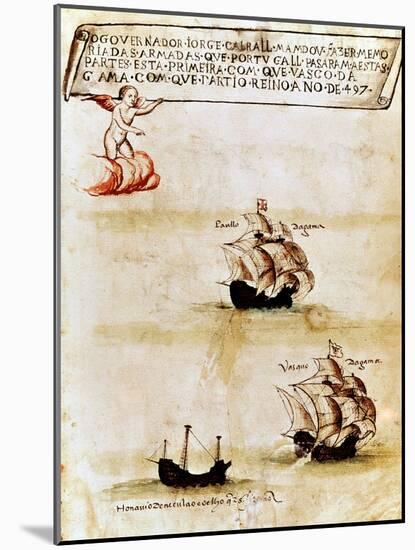 OGOVERNADOR·IORGE·CABRALL·MAMDOV·FAZER·MEMO
RIADAS·ARMADAS·QUE·PORTVGALL·PASARAM·AESTAS
PARTES·ESTA·PRIMEIRA·COM·QUE·VASCO·DA
GAMA·COM·QUE·PARTIO·REINO·ANO·DE·497·
Paullo Dagama
Vasquo Dagama
Honauio De niculao coelho